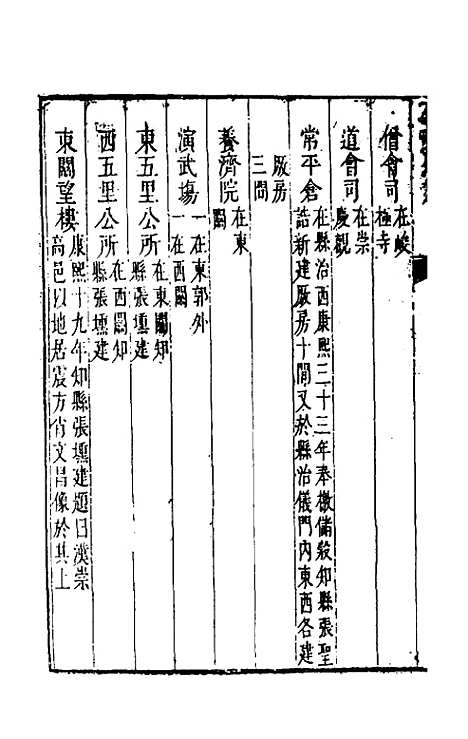 僧會司 在峻極寺
道會司 在崇慶觀
常平倉 在縣治西康熙三十三年奉檄儲穀知縣張聖誥新建厫房十間又於縣治儀門內東西各建
厫房三間
養濟院 在東關
演武場 一在東郭外一在西關
東五里公所 在東關知縣張壎建
西五里公所 在西關知縣張壎建
東關望樓 康熙十九年知縣張壎建題曰漢崇高邑以地居震方肖文昌像於其上